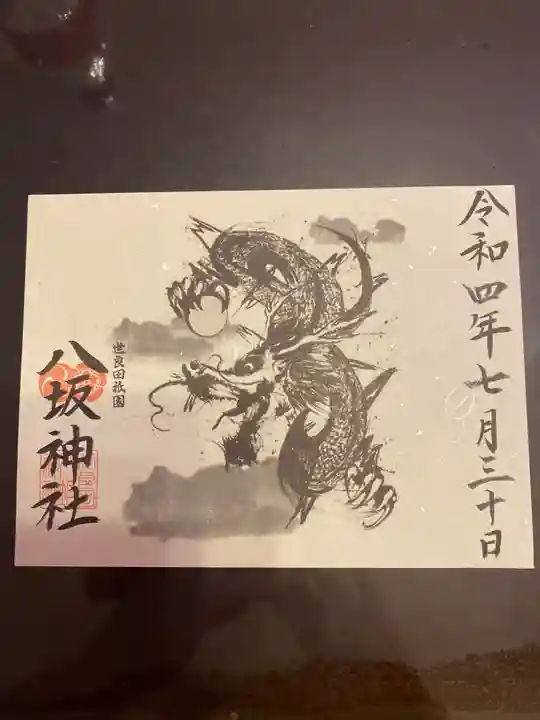 令和四年七月三十日
世良田祇園
八坂神社